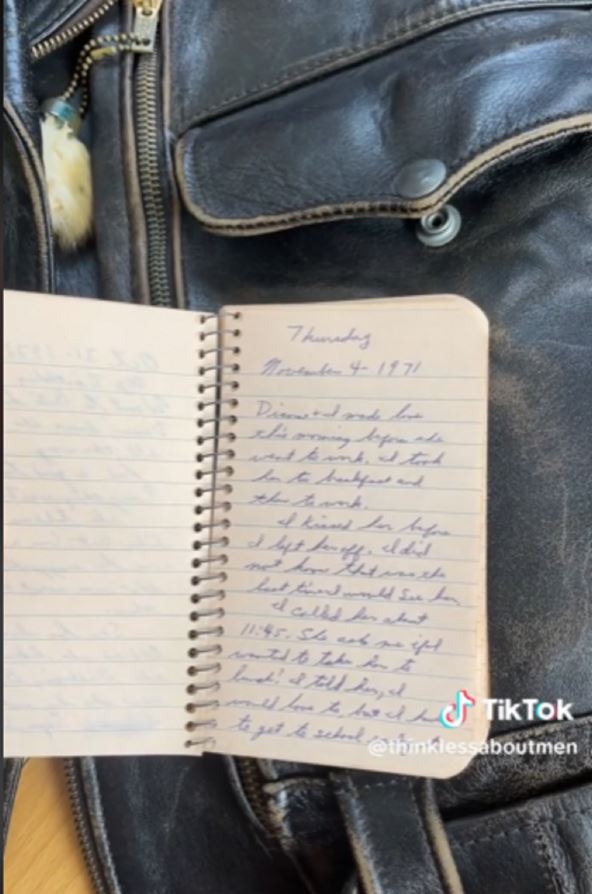 Thursday
November 4 - 1971
Diane + I made love
this morning before she
went to work. I took
her to breakfast and
then to work.
I kissed her before
I left her off. I did
not know that was the
last time I would see her.
I called her about
11:45. She ask me if I
wanted to take her to
lunch. I told her, I
would love to, but I have
to get to school
TikTok
@thinklessaboutmen